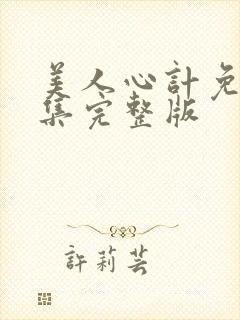 美人心計免
集完整版
許莉芸